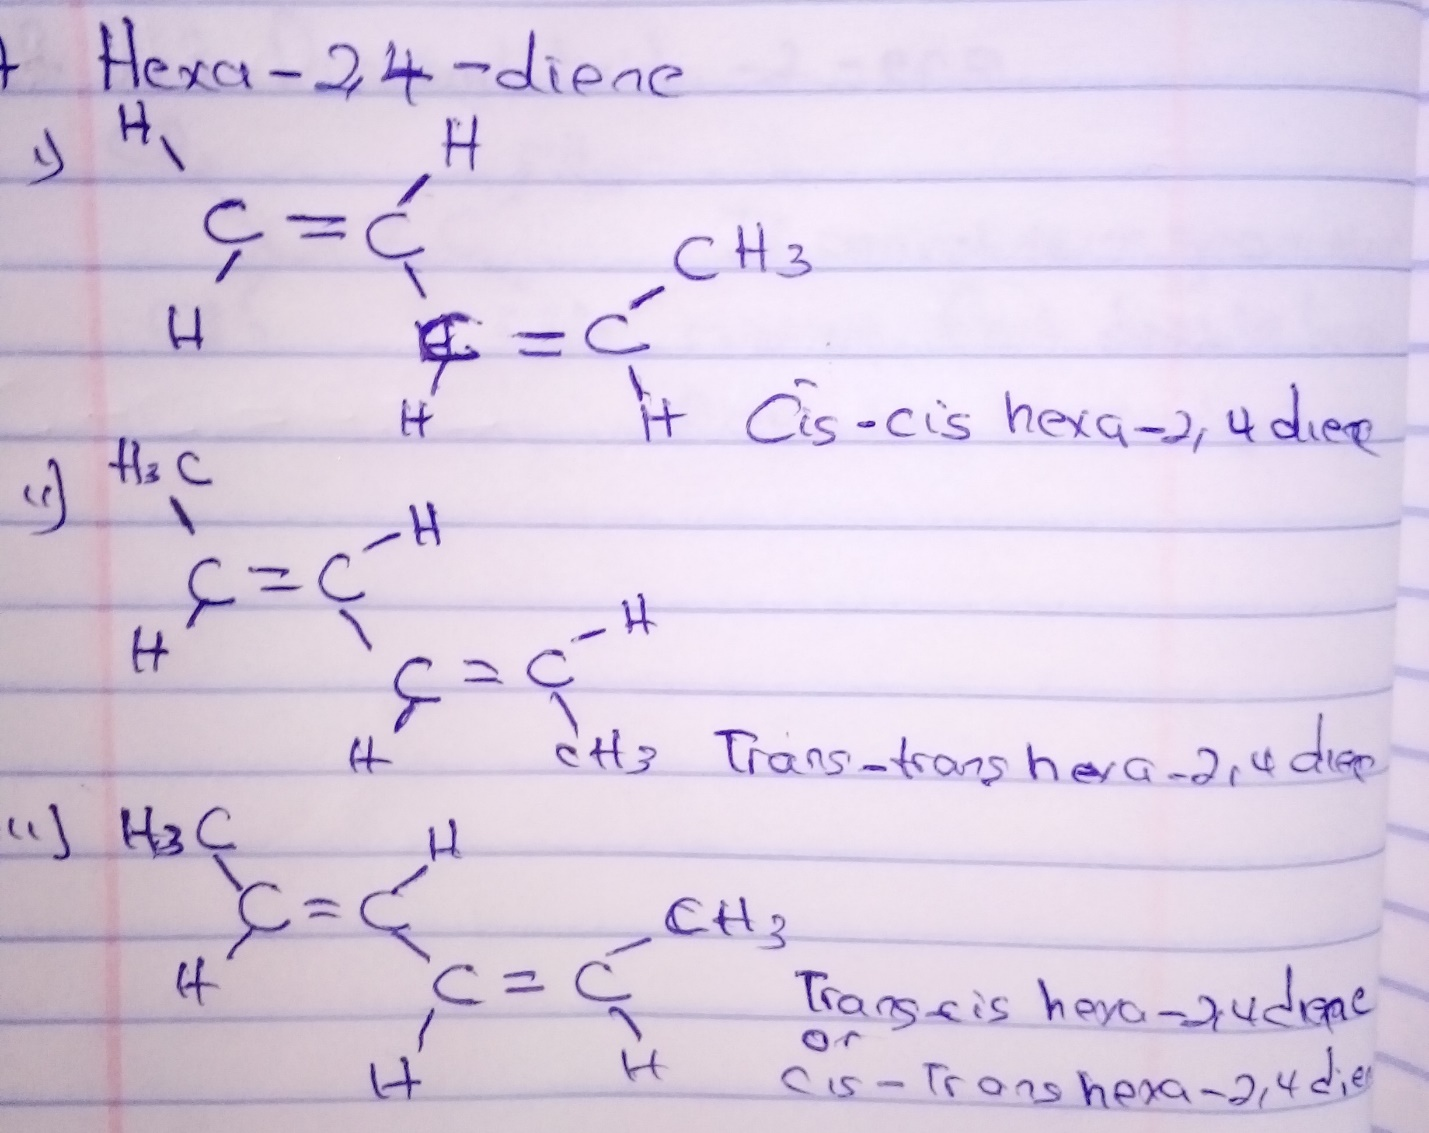 Hexa-2,4-diene
i) H H
C = C
CH3
H C = C
H H Cis-cis hexa-2,4 diene
ii) H3C
H
C = C
H
H
C = C
H CH3 Trans-trans hexa-2,4 diene
iii) H3C H
C = C CH3
H C = C Trans-cis hexa-2,4 diene
or
H H Cis-Trans hexa-2,4 dien